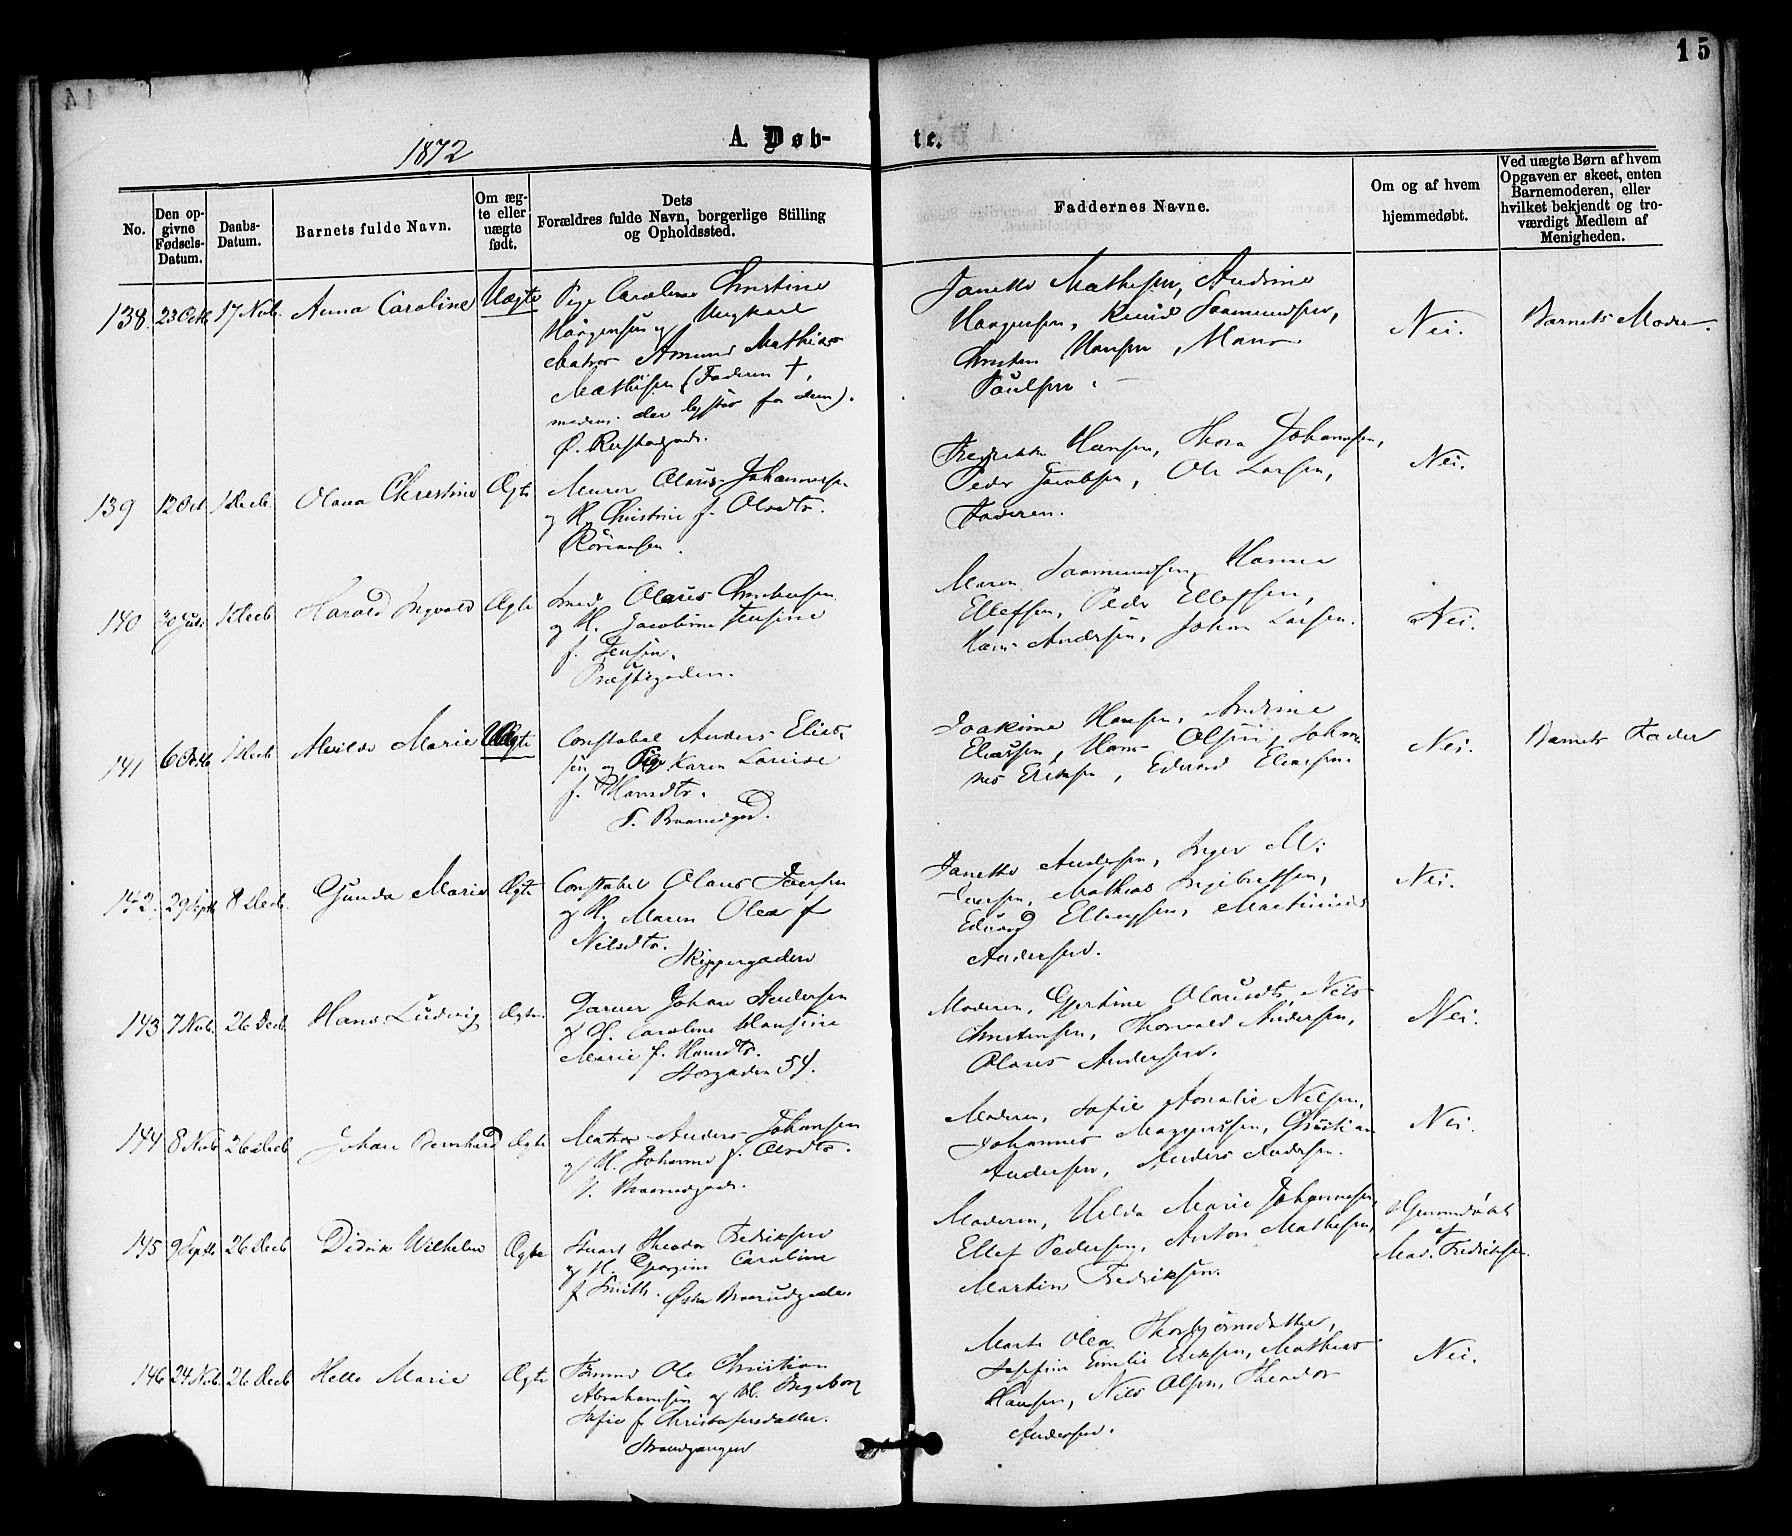 15
1872
A. Døb-
te.
No.
Den op-
givne
Fødsels-
Datum.
Daabs-
Datum.
Barnets fulde Navn.
Om æg-
te eller
uægte
født.
Dets
Forældres fulde Navn, borgerlige Stilling
og Opholdssted.
Faddernes Navne.
Om og af hvem
hjemmedøbt.
Ved uægte Børn af hvem
Opgaven er skeet, enten
Barnemoderen, eller
hvilket bekjendt og tro-
værdigt Medlem af
Menigheden.
138. 23 Octb 17 Nvb. Anna Caroline Uægte
Pige Caroline Christine
Jørgensen og Ungkarl
Matros Amund Mathias
Mathisen (Faderen †,
medens der lystes for dem).
Janette Mathesen, Andrine
Knud Saamundsen,
Christen Hansen, Hans
Paulsen.
Nei. Barnets Moder.
139 12 Oct 1 Decb Olava Christine Ægte
Murer Olaus Johannesen
og H. Christine f. Olsdtr.
Fredrikke Hansen, Thora Johannesen,
Peder Jacobsen, Ole Larsen,
Faderen.
Nei.
140 30 Juli 1 Decb Harald Ingvald Ægte
Smed Olaus Christensen
og H. Jacobine Jensine
f. Jensen.
Præstegaden.
Maren Saamundsen, Hanna
Ellefsen, Peder Ellefsen,
Hans Andersen, Johan Larsen.
Nei.
141 6 Octb 1 Decb Alvilde Marie Uægte
Constabel Anders Elias-
sen og Pige Karen Lovise
f. Hansdtr.
Joakime Hansen, Andrine
Eliassen, Hans Olsen, Johan-
nes Eriksen, Edvard Eliassen.
Nei. Barnets Fader
142. 29 Septb 8 Decb. Gunda Marie Ægte
Constabel Olaus Iversen
og H. Maren Olea f
Nilsdtr.
Skippergaden
Janette Andersen, Inger M.
Iversen, Mathias Ingebretsen,
Edvard Ellingsen, Martinius
Andersen.
Nei.
143 7 Nvb. 26 Decb. Hans Ludvig Ægte.
Garver Johan Andersen
og H. Caroline Hansine
Marie f. Hansdtr.
Storgaden 54.
Moderen, Gjertine Olausdtr, Nils
Christensen, Thorvald Andersen,
Olaus Andersen.
Nei.
144 8 Nvb 26 Decb Johan Bernhard Ægte
Matros Anders Johansen
og H. Johanne f. Olsdtr.
V. Braarudgade.
Moderen, Sofie Amalie Nilsen,
Johannes Magnussen, Christian
Andersen, Anders Andersen.
Nei.
145 9 Septb 26 Decb Didrik Wilhelm Ægte
Stuart Theodor Fredriksen
og H. Georgine Caroline
f Smith. Østre Braarudgade.
Moderen, Hilda Marie Johannesen,
Ellef Pedersen, Anton Mathesen,
Martin Fredriksen.
Hjemmedøbt
af
Mad. Fredriksen.
146 24 Nvb. 26 Decb Helle Marie Ægte
Tømmd Ole Christian
Abrahamsen og H. Ingeborg
Sofie f. Christofersdatter.
Strandgangen
Marte Olea Thorbjørnsdatter,
Josefine Emilie Eriksen, Mathias
Hansen, Nils Olsen, Theodor
Andersen.
Nei.